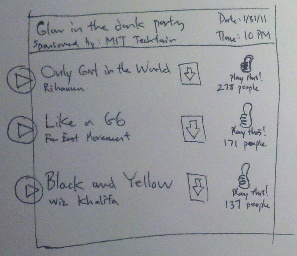 Glow in the dark party
Date: 1/31/11
Sponsored by: MIT Techfair
Time: 10 PM
Only Girl in the World
Rihanna
Play this!
278 people
Like a G6
Far East Movement
Play this!
171 people
Black and Yellow
Wiz Khalifa
Play this!
137 people